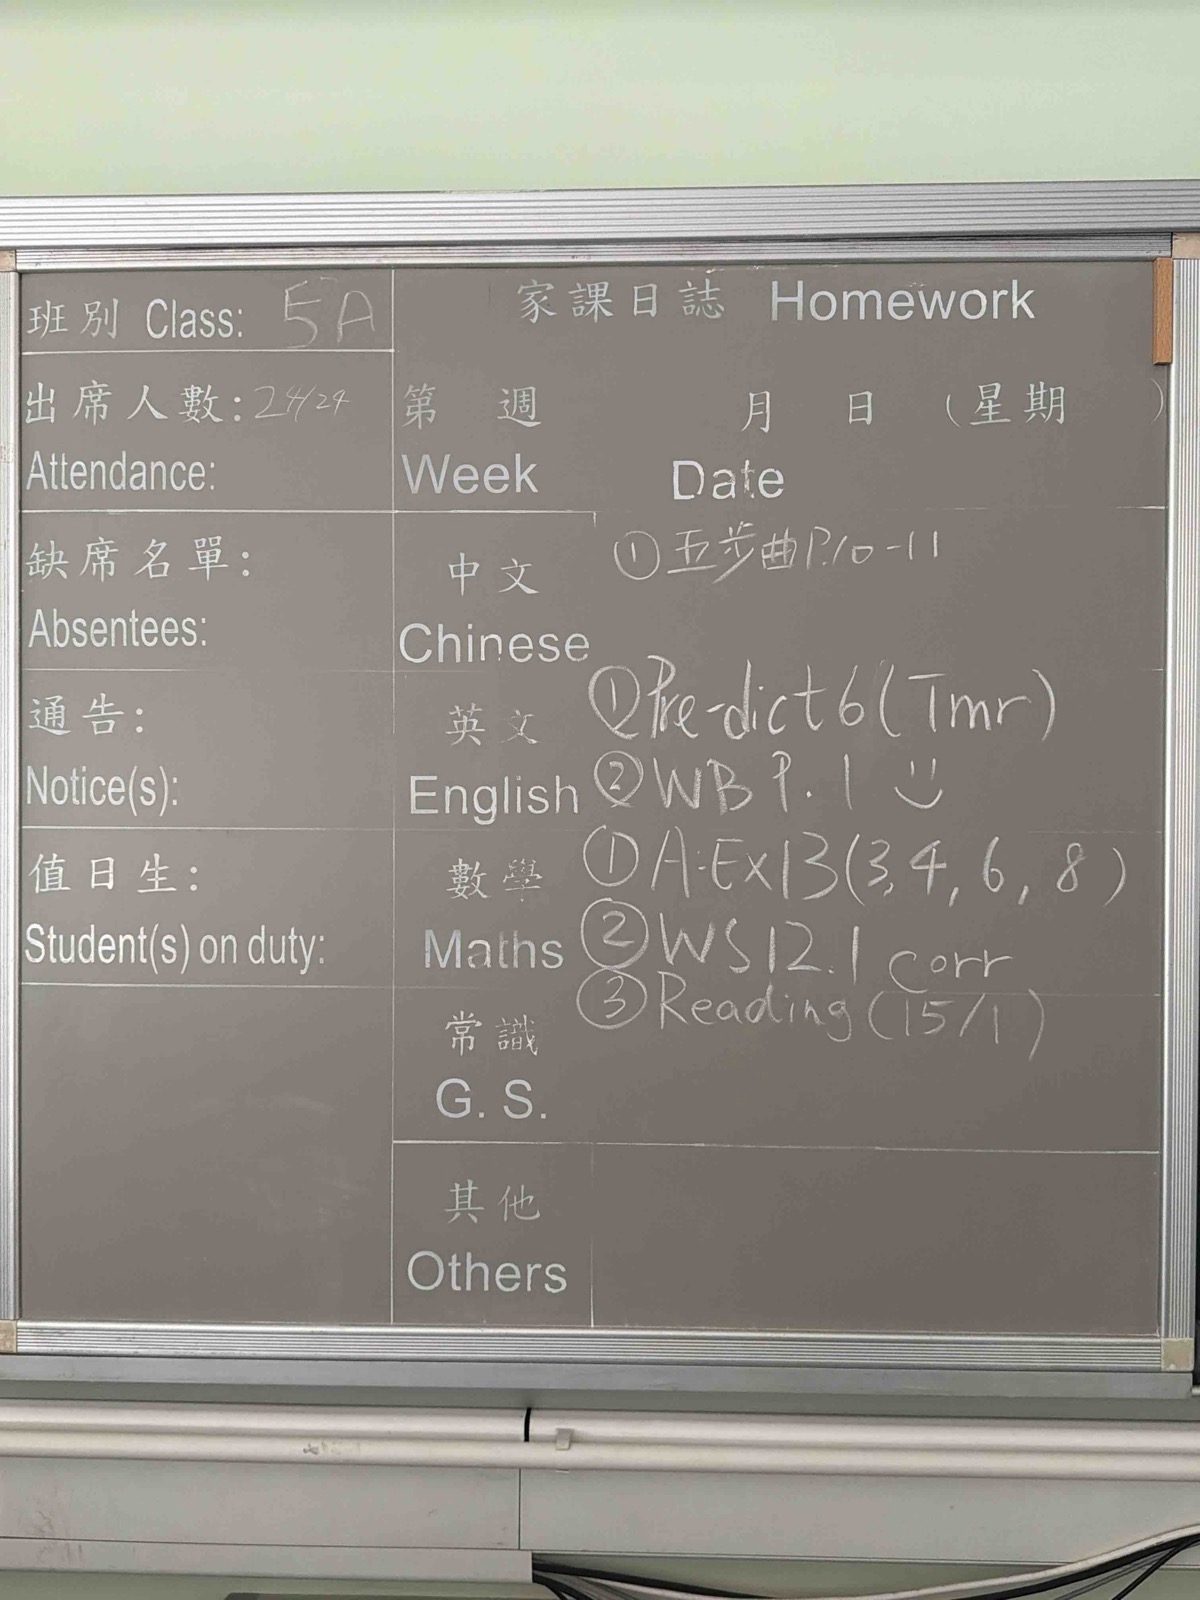 班別 Class: 5A
出席人數: 24/24
Attendance:
缺席名單:
Absentees:
通告:
Notice(s):
值日生:
Student(s) on duty:
家課日誌 Homework
第 週 月 日 (星期 )
Week Date
中文
Chinese
① 五步曲 P.10-11
英文
English
① Pre-dict 6 (Tmr)
② WB P. 1
數學
Maths
① A.Ex13 (3, 4, 6, 8)
② WS12.1 corr
③ Reading (15/1)
常識
G. S.
其他
Others